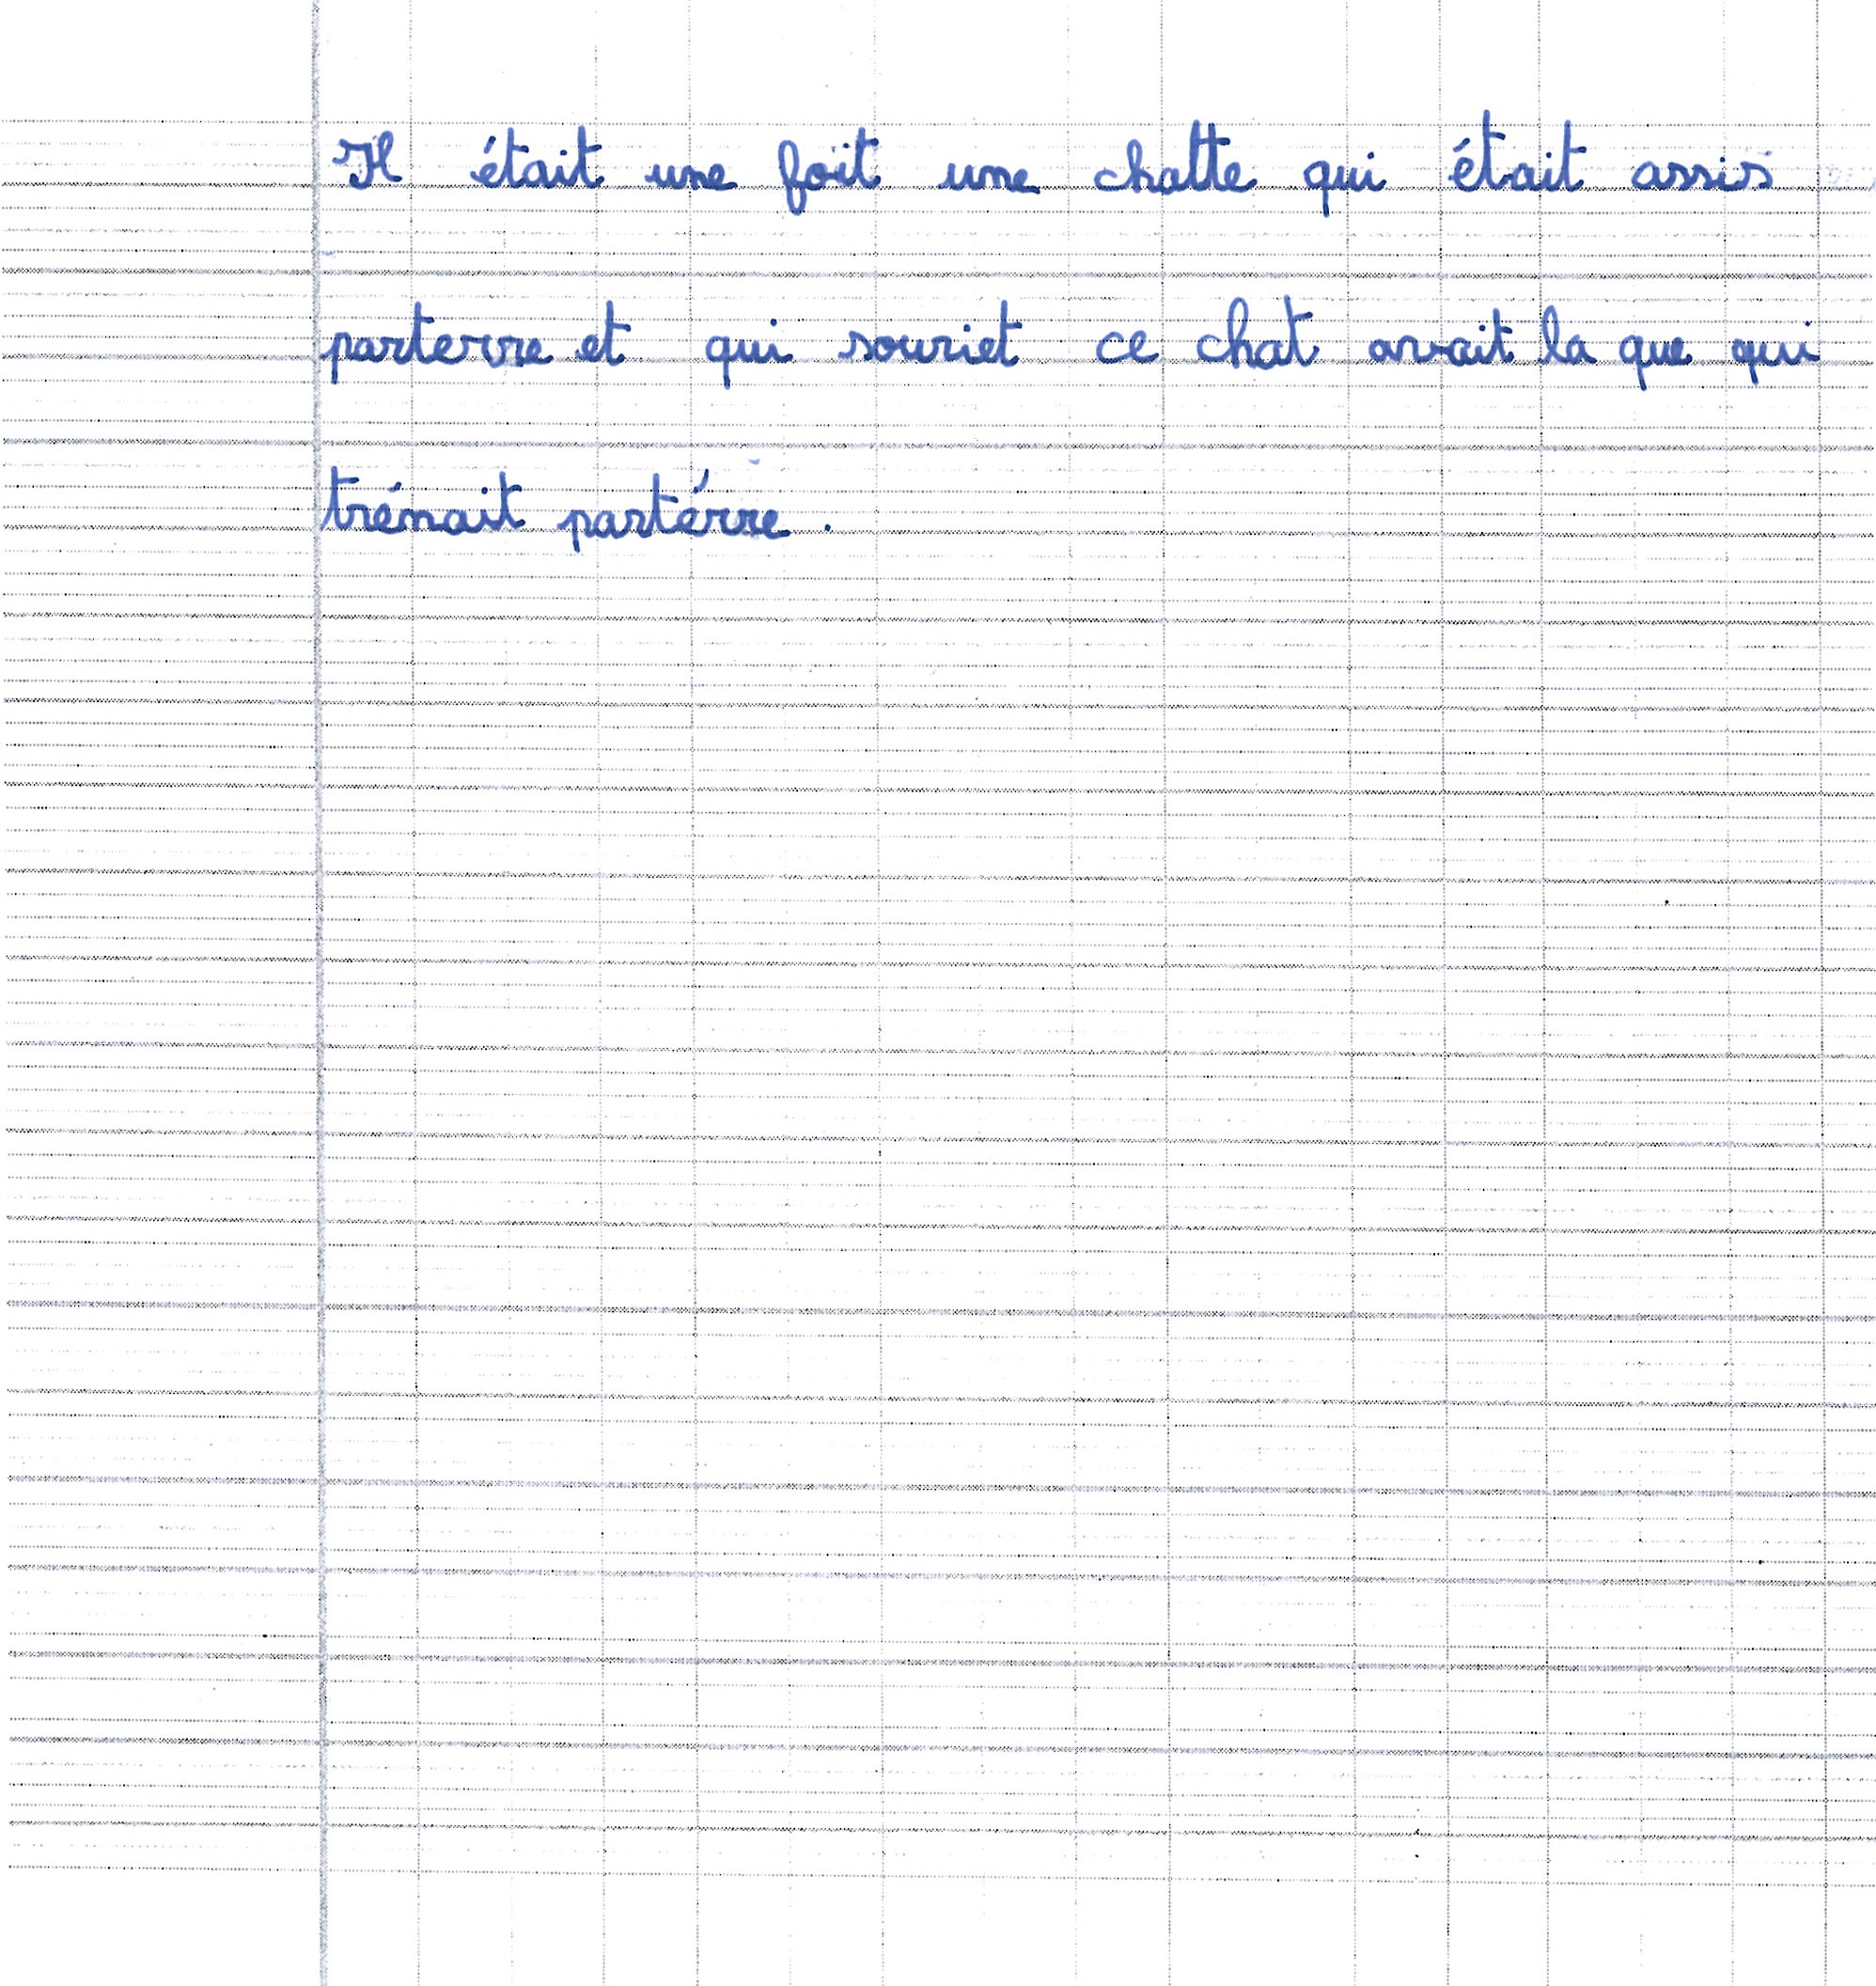 Il était une foit une chatte qui était assis
parterre et qui souriet ce chat avait la que qui
trénait partérre .